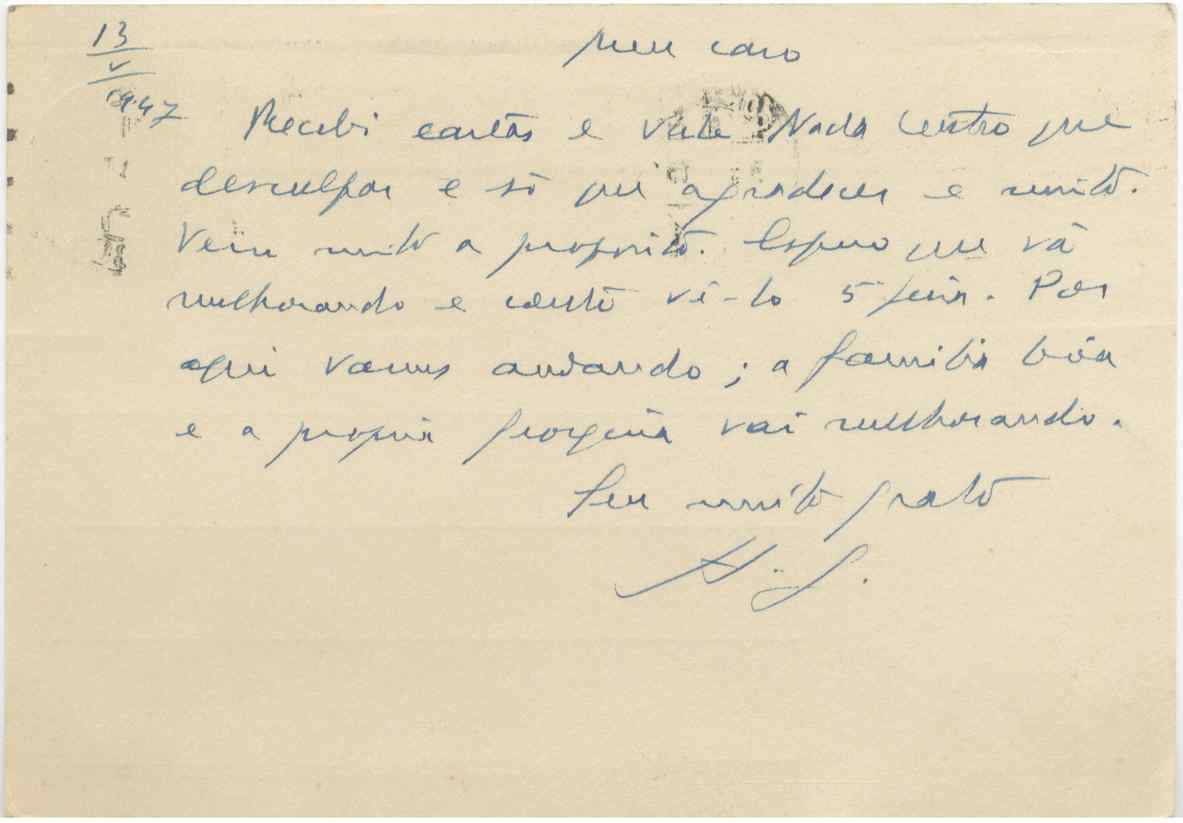 13
V
1947
Meu caro
Recebi cartas e vale Nada tenho que
desculpar e só que agradecer e muito.
Vem muito a proposito. Espero que vá
melhorando e conto vê-lo 5ª feira. Por
aqui vamos andando; a familia bôa
e a propria Georgina vai melhorando.
Seu muito grato